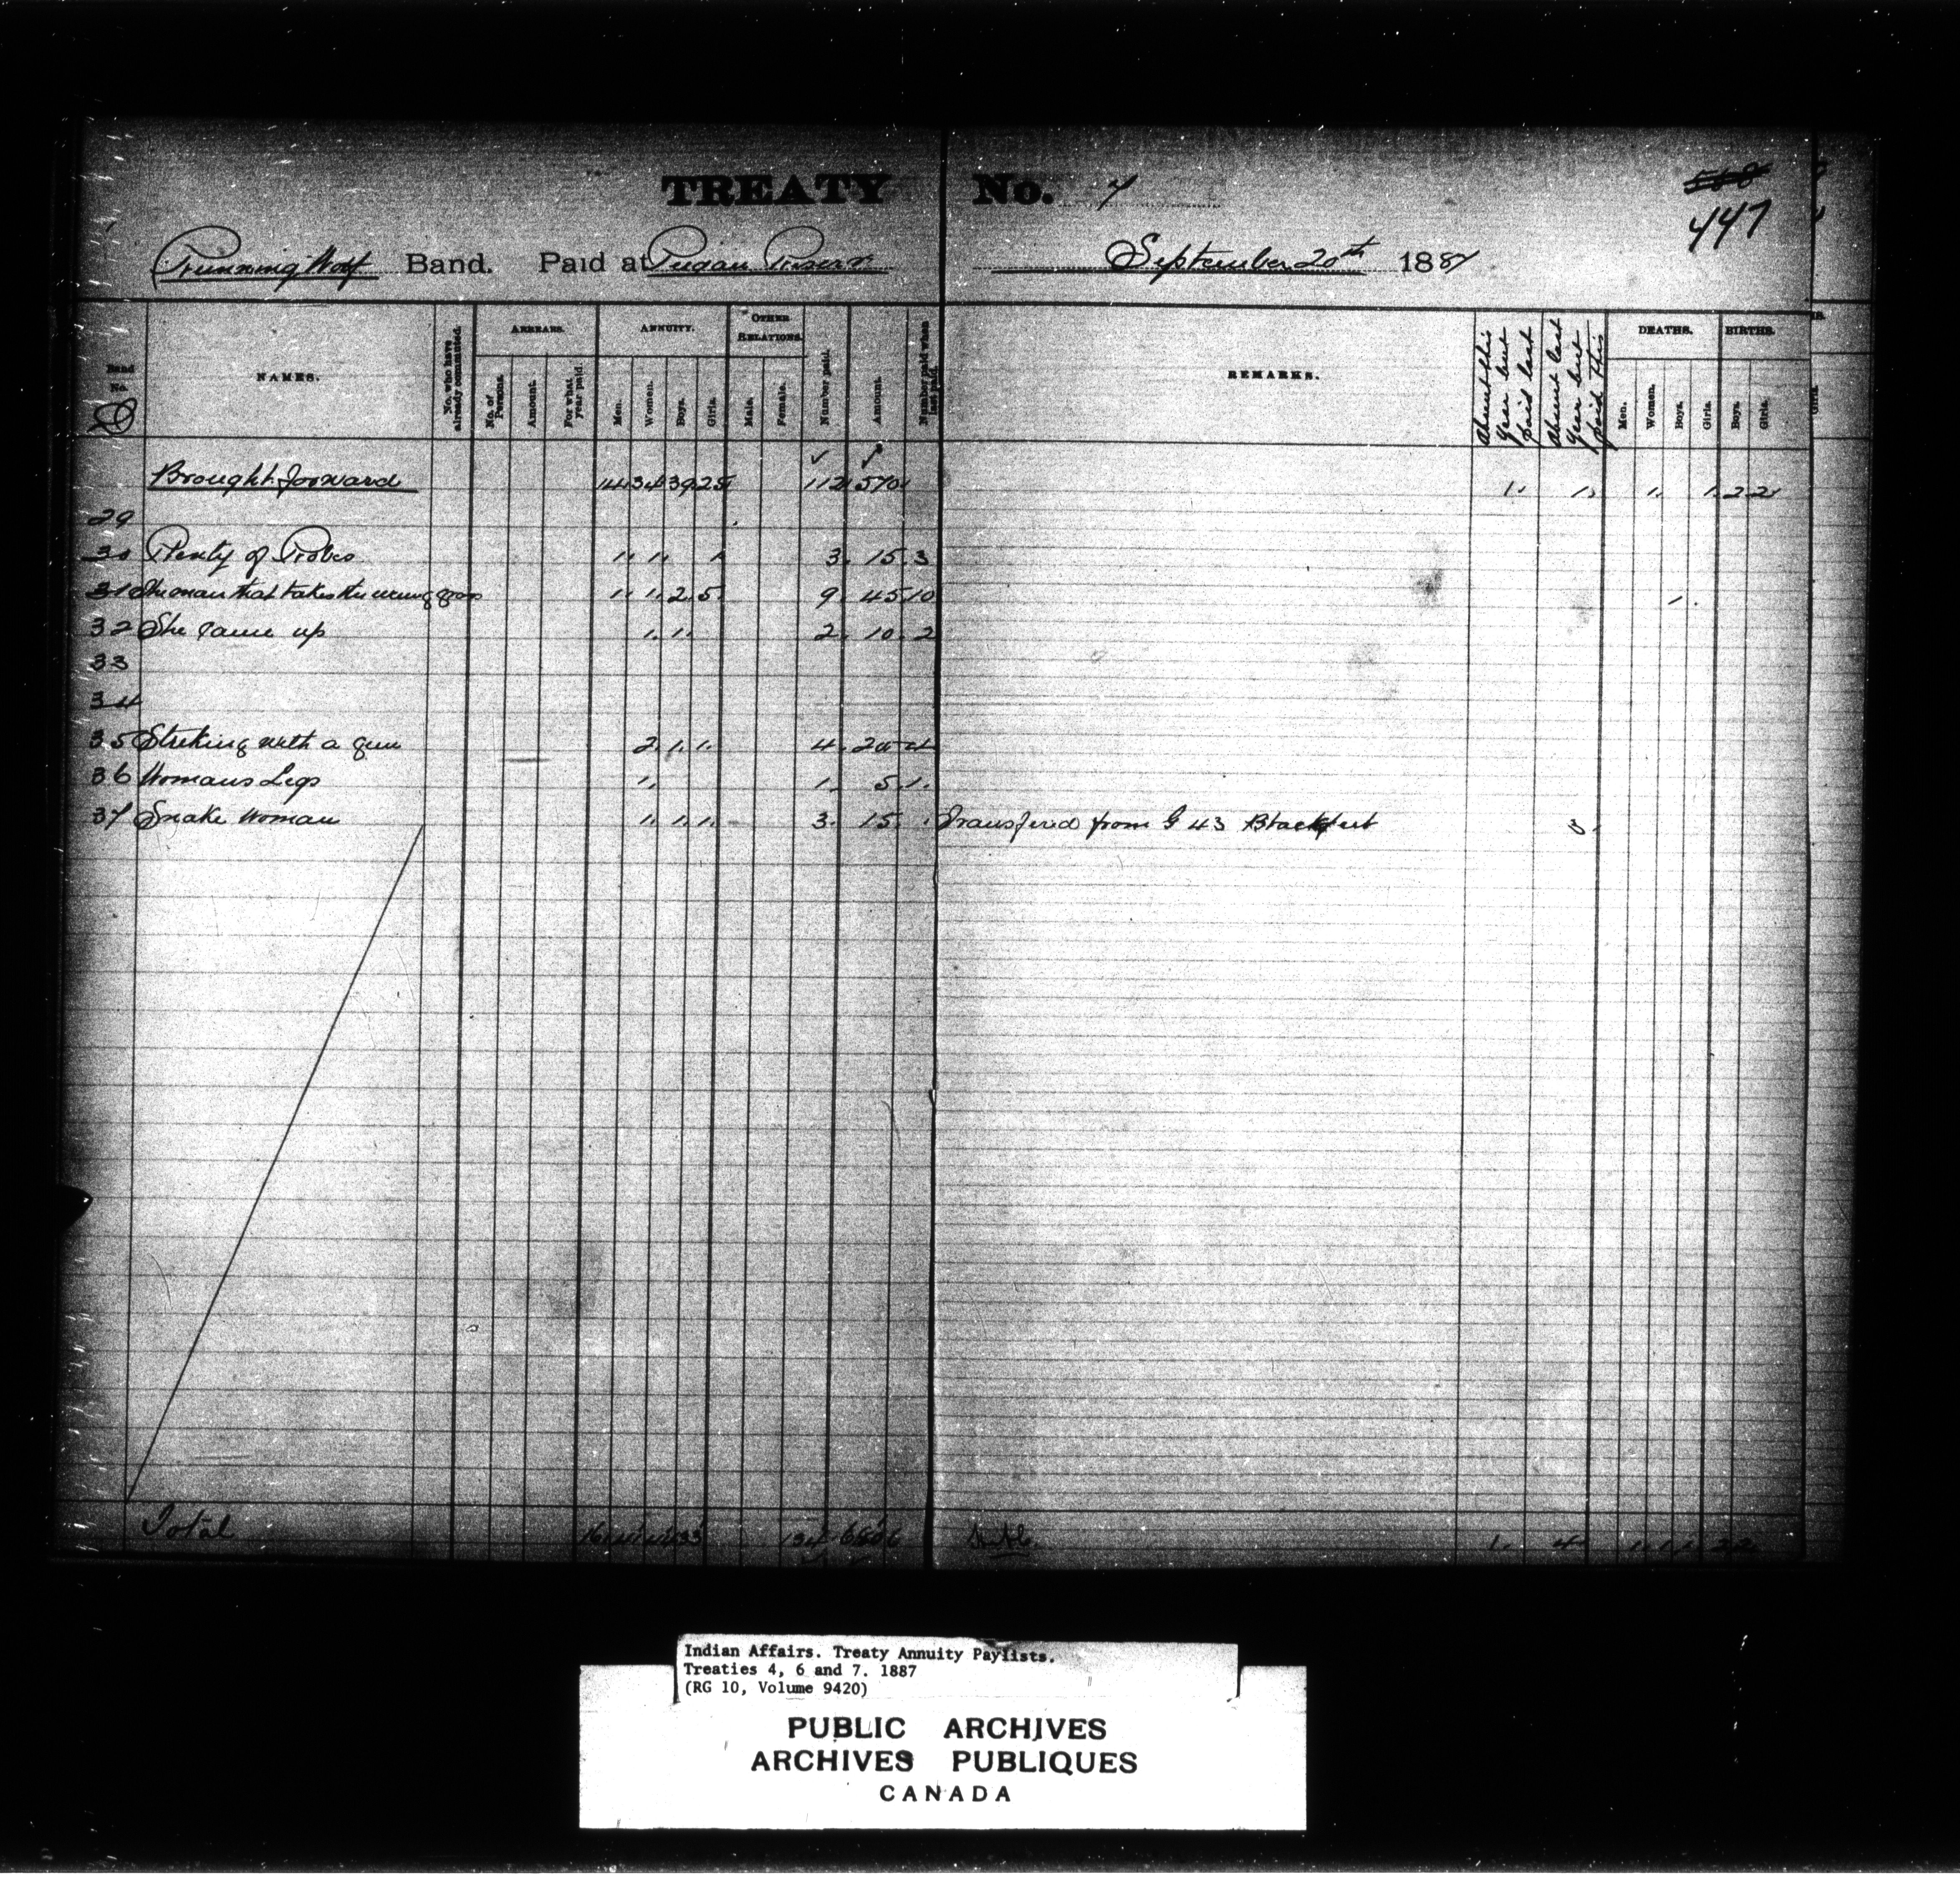 TREATY No. 7
568
447
Running Wolf Band. Paid at Piegan Reserve September 20th 1887
Band No. NAMES. No. who have already commuted. ARREARS. No. of Persons. Amount. For what year paid. ANNUITY. Men. Women. Boys. Girls. OTHER RELATIONS. Male. Female. Number paid. Amount. Number paid when last paid. REMARKS. Absent this year but paid last Absent last year but paid this DEATHS. Men. Women. Boys. Girls. BIRTHS. Boys. Girls.
D
Brought forward 14 34 39 25 112 570 1 1 1 1 2 2
29
30 Plenty of Robes 1 1 1 3 15 3
31 The man that takes the wrong 1 1 2 5 9 45 10 1
32 She came up 1 1 2 10 2
33
34
35 Striking with a gun 2 1 1 4 20 4
36 Womans Legs 1 1 5 1
37 Snake Woman 1 1 1 3 15 Transfered from G 43 Blackfeet 3
Total 16 41 44 33 134 680 1 4 1 1 1 2 2
Indian Affairs. Treaty Annuity Paylists.
Treaties 4, 6 and 7. 1887
(RG 10, Volume 9420)
PUBLIC ARCHIVES
ARCHIVES PUBLIQUES
CANADA